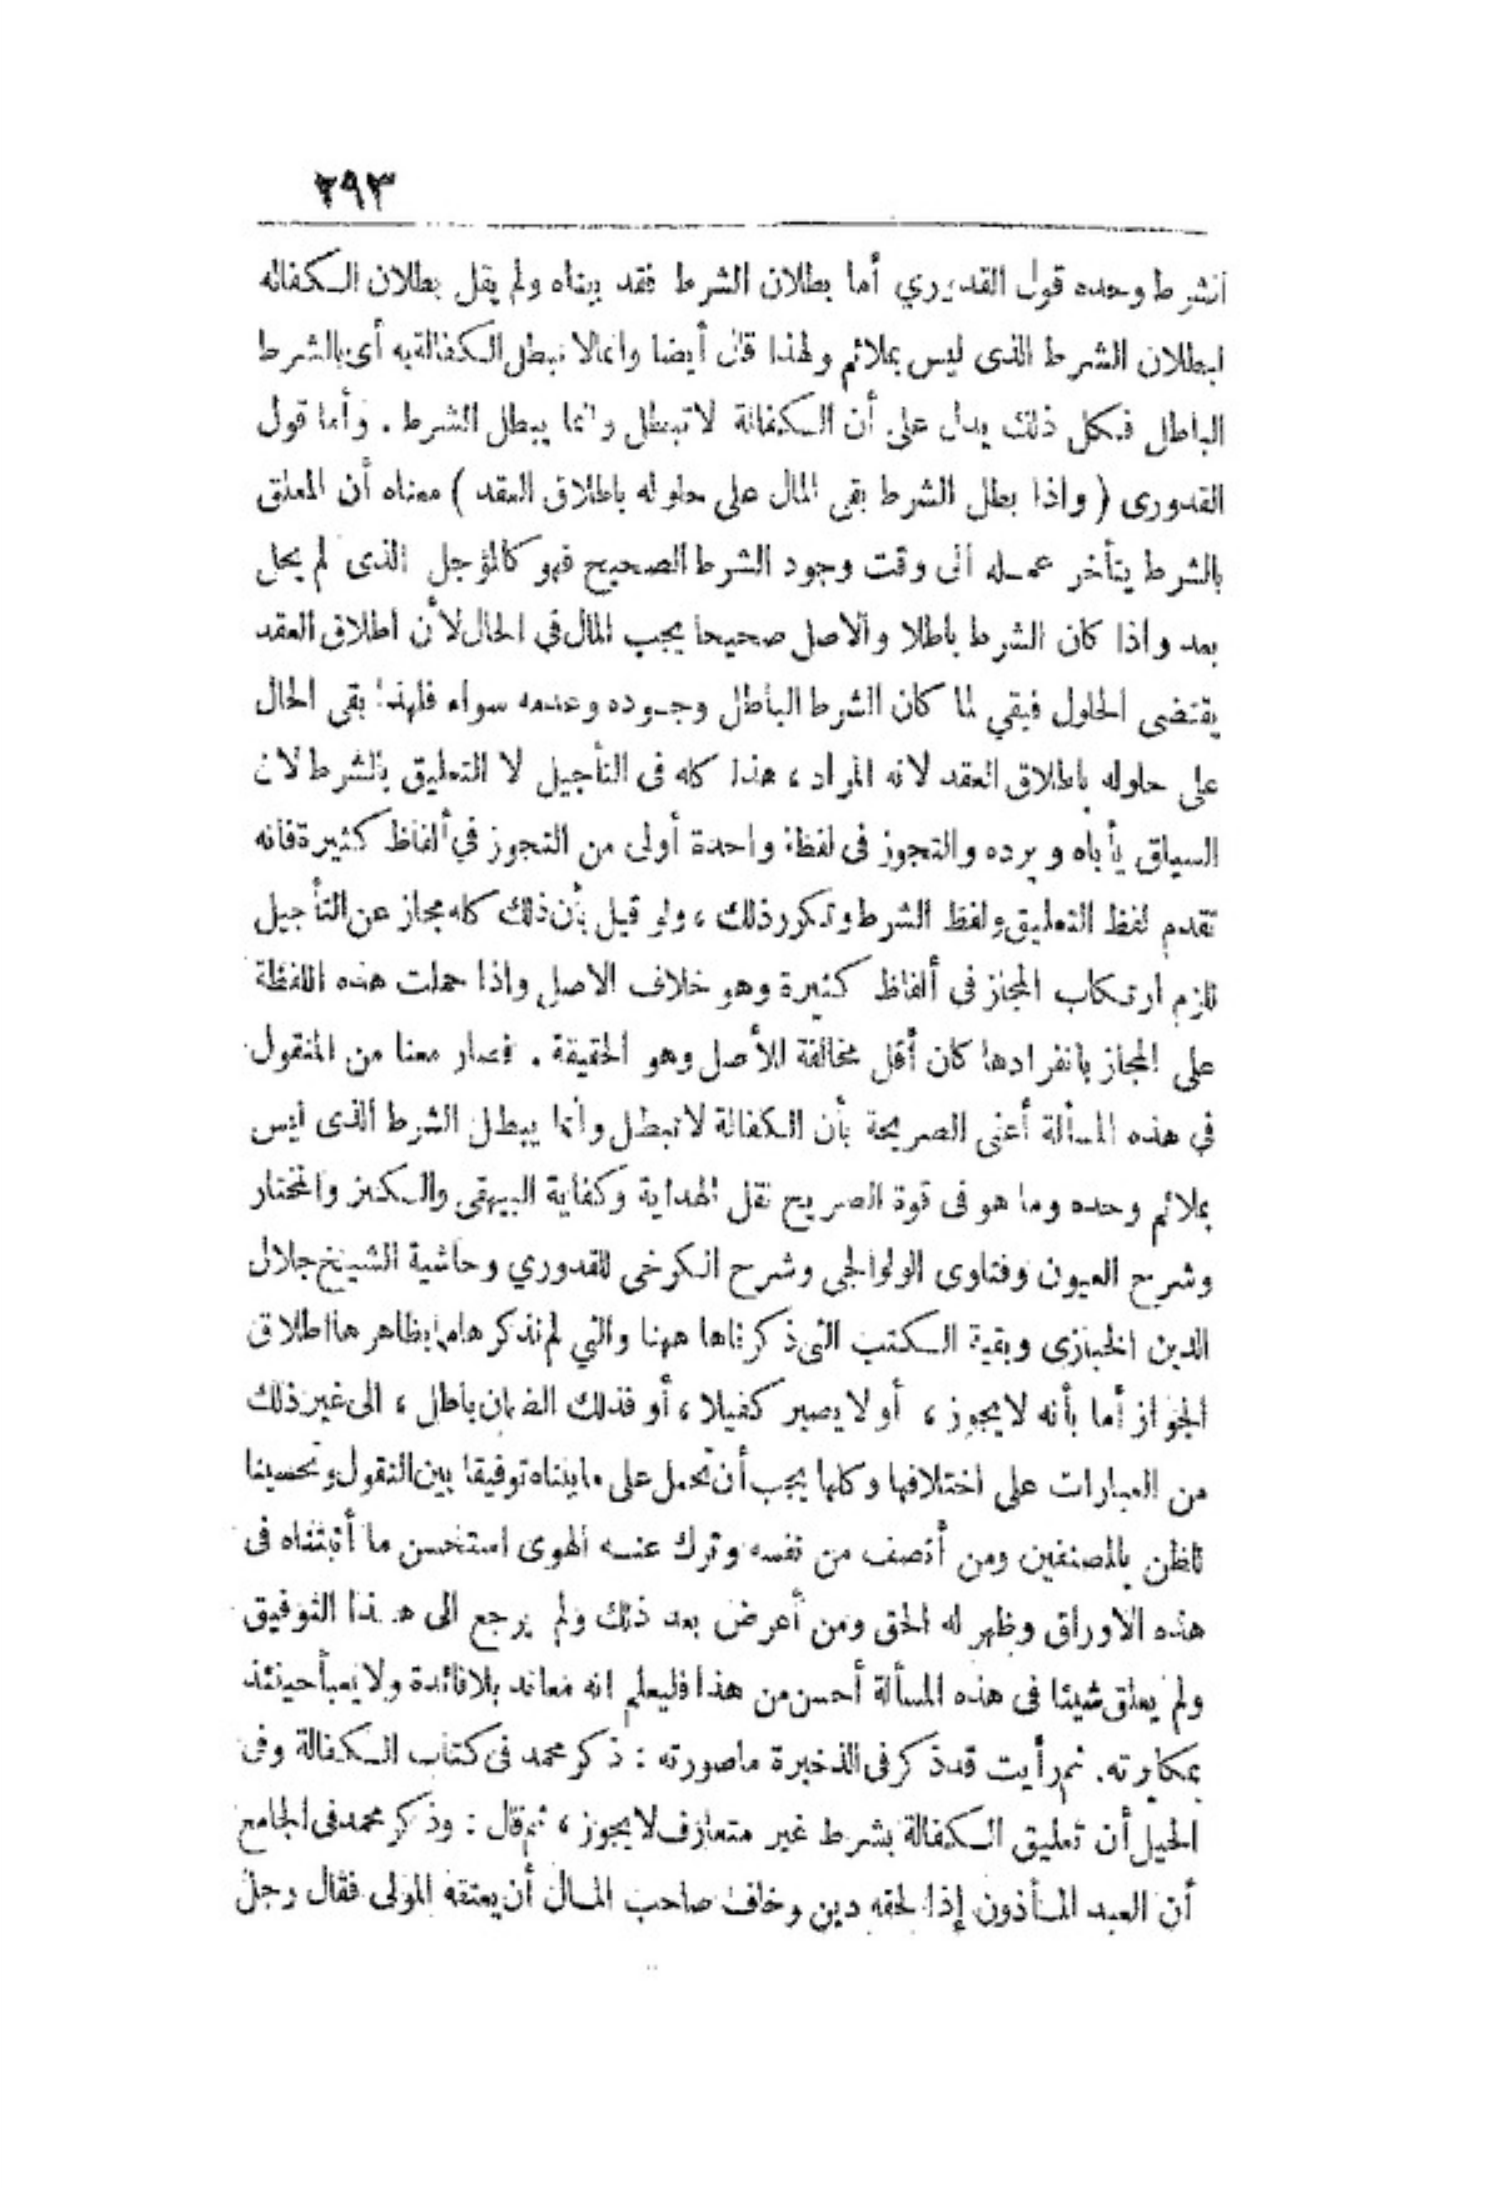 ٢٩٣
الشرط وحده قول القدوري أما بطلان الشرط فقد بيناه ولم يقل بطلان الكفالة
لبطلان الشرط الذى ليس بملائم ولهذا قال أيضا وانما لا تبطل الكفالة به أى بالشرط
الباطل فكل ذلك يدل على أن الكفالة لا تبطل وانما يبطل الشرط . وأما قول
القدورى ( واذا بطل الشرط بقى المال على حلوله باطلاق العقد ) معناه أن المعلق
بالشرط يتأخر عمله الى وقت وجود الشرط الصحيح فهو كالمؤجل الذى لم يحل
بعد واذا كان الشرط باطلا والاصل صحيحا يجب المال فى الحال لأن اطلاق العقد
يقتضى الحلول فبقي لما كان الشرط الباطل وجوده وعدمه سواء فلهذا بقى الحال
على حلوله باطلاق العقد لانه المراد ، هذا كله فى التأجيل لا التعليق بالشرط لان
السياق يأباه ويرده والتجوز فى لفظة واحدة أولى من التجوز في ألفاظ كثيرة فانه
تقدم لفظ التعليق ولفظ الشرط وتكرر ذلك ، ولو قيل بأن ذلك كله مجاز عن التأجيل
للزم ارتكاب المجاز فى ألفاظ كثيرة وهو خلاف الاصل واذا حملت هذه اللفظة
على المجاز بانفرادها كان أقل مخالفة للأصل وهو الحقيقة . فصار معنا من المنقول
في هذه المسألة أعنى الصريحة بأن الكفالة لا تبطل وأنما يبطل الشرط الذى ليس
بملائم وحده وما هو فى قوة الصريح نقل الهداية وكفاية البيهقى والكنز والمختار
وشرح العيون وفتاوى الولوالجى وشرح الكرخى للقدوري وحاشية الشيخ جلال
الدين الخبازى وبقية الكتب التى ذكرناها ههنا والتي لم نذكرها مما بظاهرها اطلاق
الجواز أما بأنه لا يجوز ، أو لا يصير كفيلا ، أو فذلك الضمان باطل ، الى غير ذلك
من العبارات على اختلافها وكلها يجب أن تحمل على ما بيناه توفيقا بين النقول وتحسينا
للظن بالمصنفين ومن أنصف من نفسه وترك عنه الهوى استحسن ما أثبتناه فى
هذه الاوراق وظهر له الحق ومن أعرض بعد ذلك ولم يرجع الى هذا التوفيق
ولم يعلق شيئا فى هذه المسألة أحسن من هذا فليعلم انه معاند بلا فائدة ولا يعبأ حينئذ
بمكابرته. ثم رأيت قد ذكر فى الذخيرة ما صورته : ذكر محمد فى كتاب الكفالة وفى
الحيل أن تعليق الكفالة بشرط غير متعارف لا يجوز ، ثم قال : وذكر محمد فى الجامع
أن العبد المأذون إذا لحقه دين وخاف صاحب المال أن يعتقه المولى فقال رجل